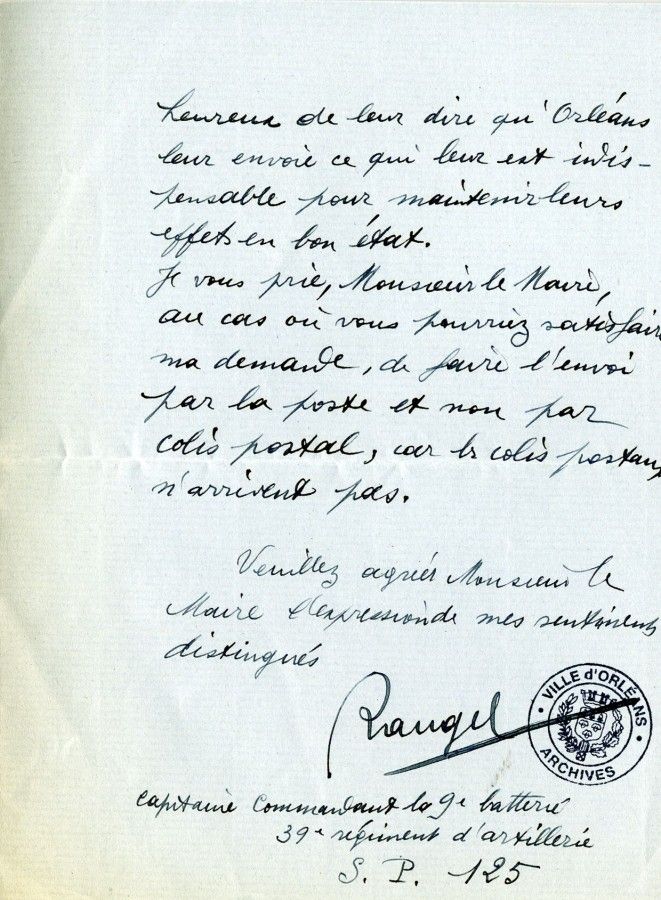 heureux de leur dire qu'Orléans
leur envoie ce qui leur est indis-
pensable pour maintenir leurs
effets en bon état.
Je vous prie, Monsieur le Maire,
au cas où vous pourriez satisfaire
ma demande, de faire l'envoi
par la poste et non par
colis postal, car les colis postaux
n'arrivent pas.
Veuillez agréer Monsieur le
Maire l'expression de mes sentiments
distingués
VILLE d'ORLÉANS
ARCHIVES
Capitaine Commandant la 9e batterie
39e régiment d'artillerie
S. P. 125